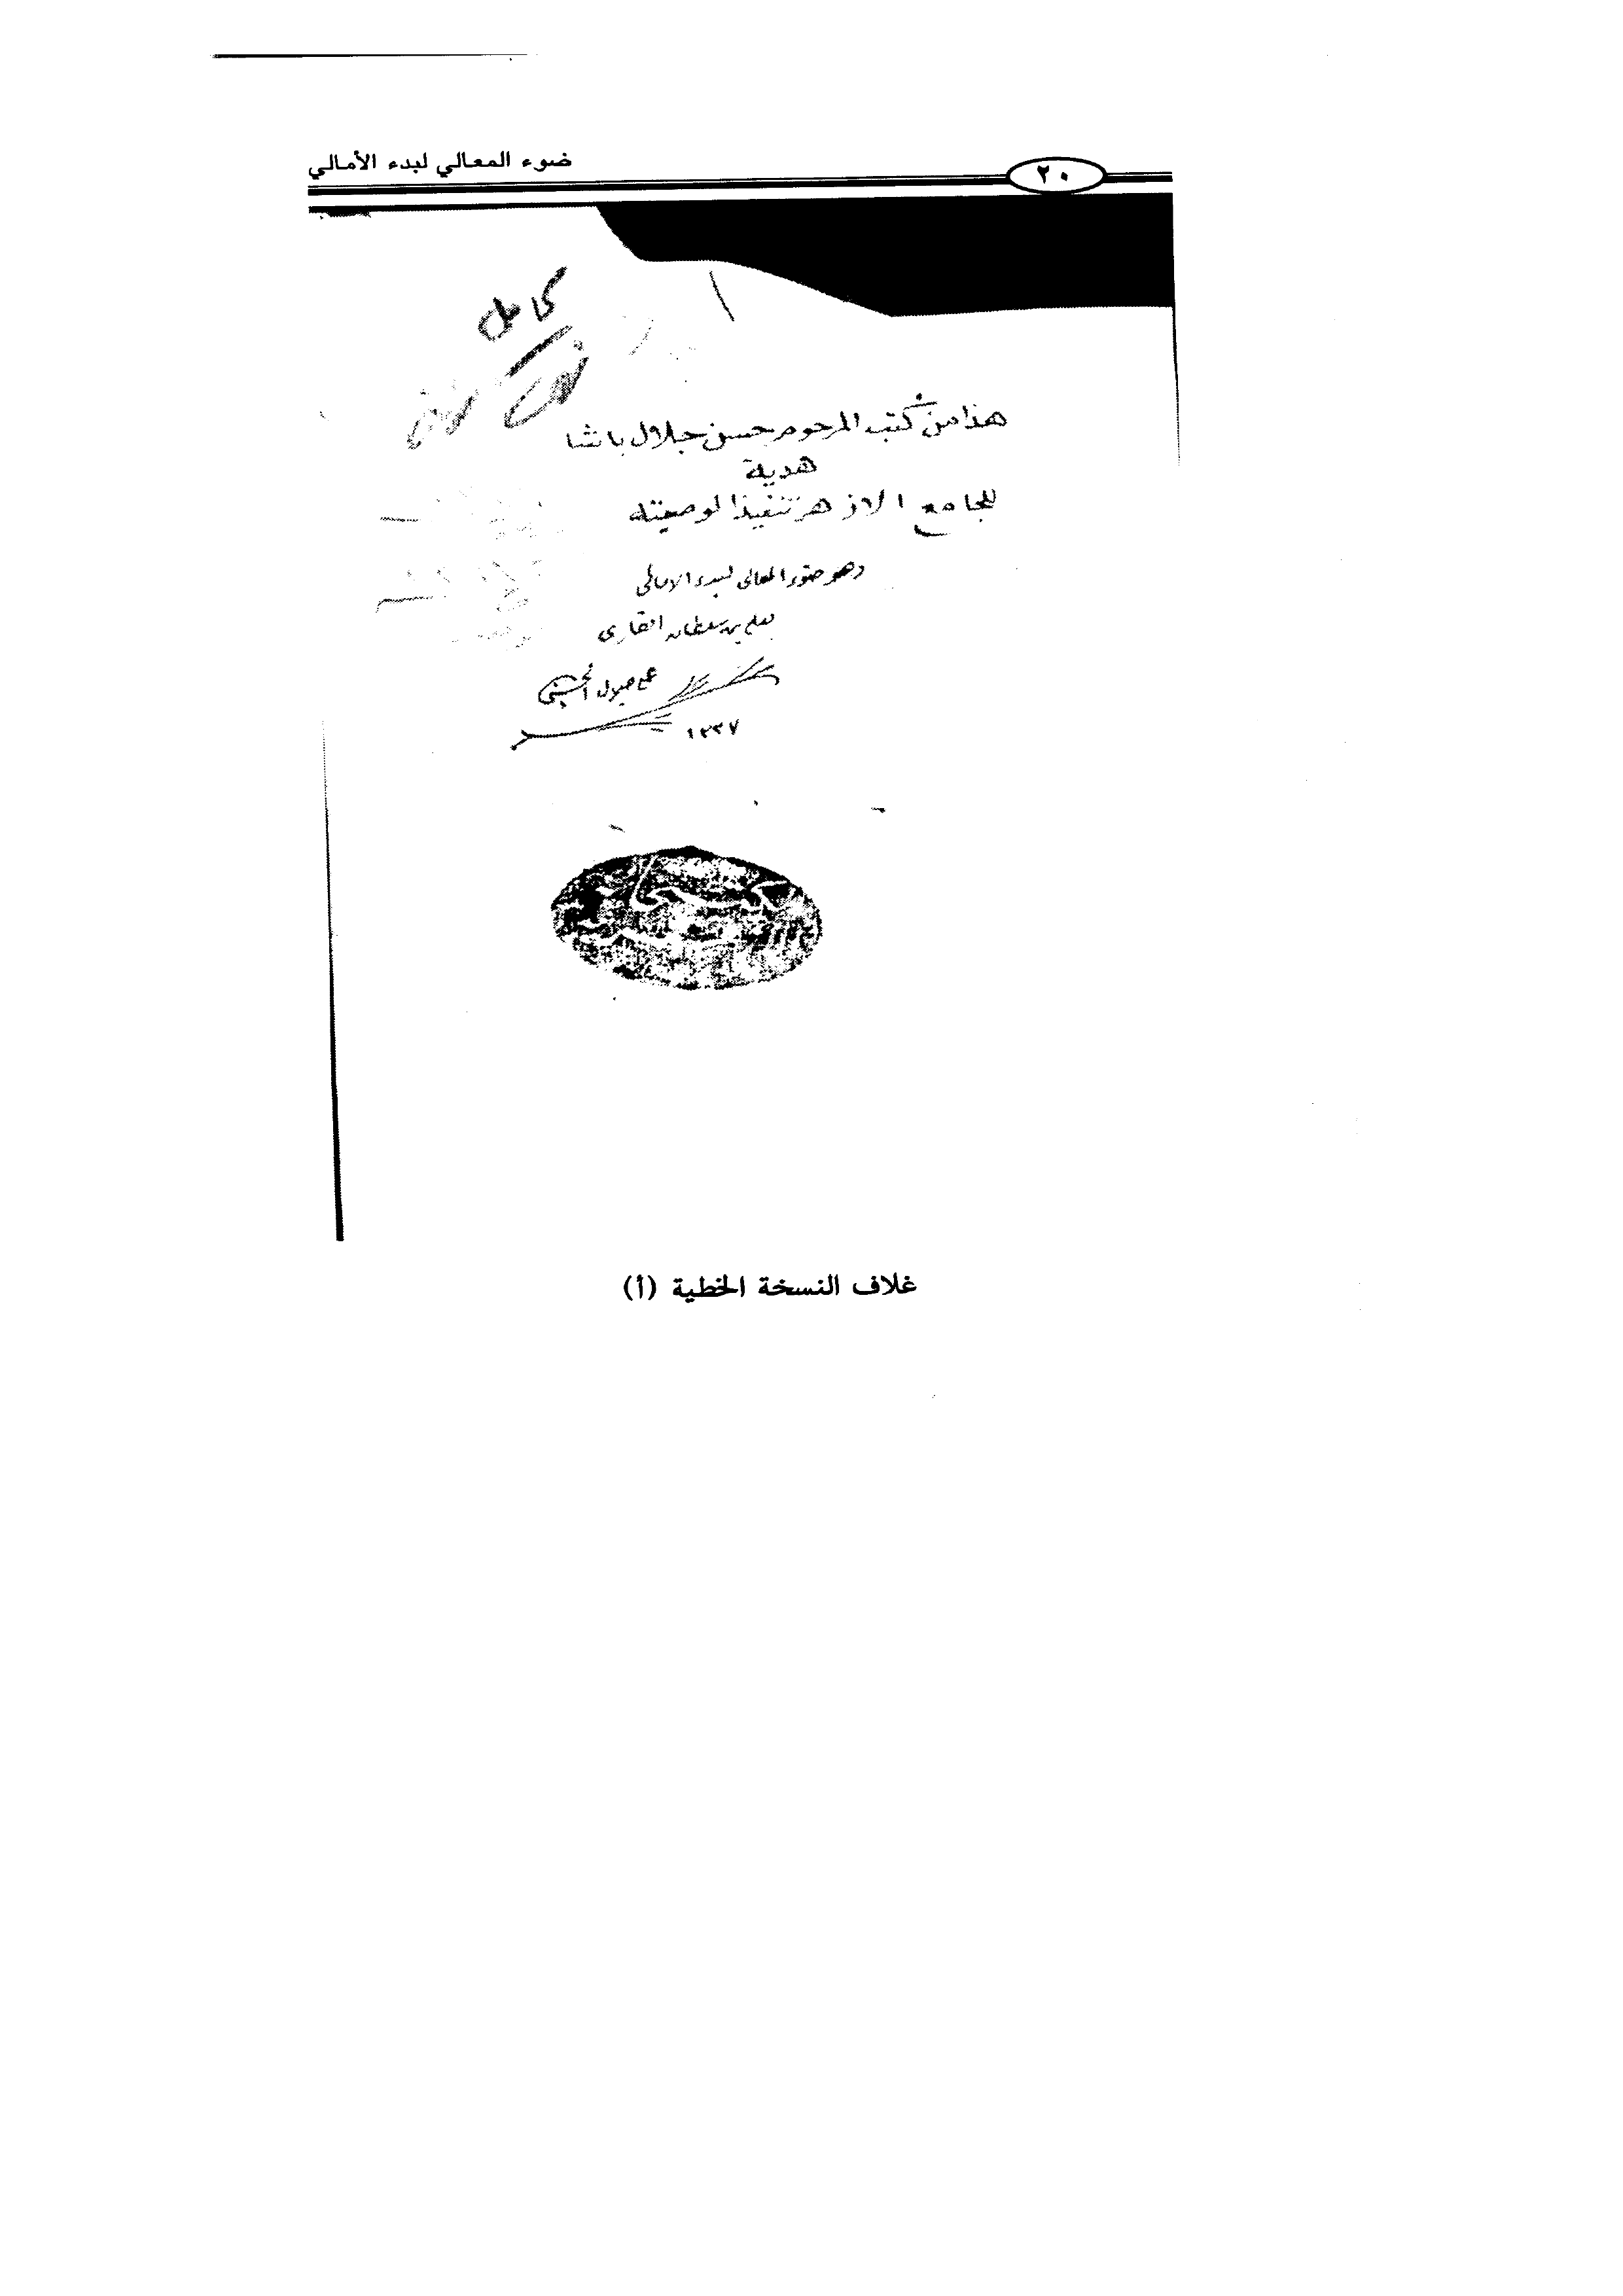 ٢٠
ضوء المعالي لبدء الأمالي
كامل
هذا من كتب المرحوم حسن جلال باشا
هدية
للجامع الازهر تنفيذا لوصيته
وهو ضوء المعالى لبدء الامالى
لعلى بن سلطان القارى
جلال الحسينى
١٣٣٧
غلاف النسخة الخطية (أ)